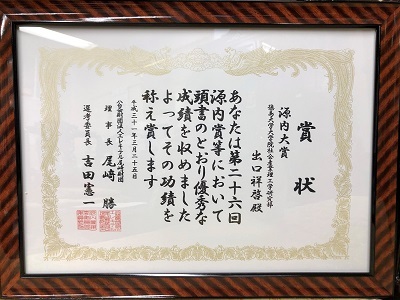 賞状
源内大賞
徳島大学大学院社会産業理工学研究部
出口祥啓殿
あなたは第二十六回
源内賞等において
頭書のとおり優秀な
成績を収めました
よってその功績を
称え賞します
平成三十一年三月二十五日
公益財団法人エレキテル尾崎財団
理事長 尾崎 勝
選考委員長 吉田憲一